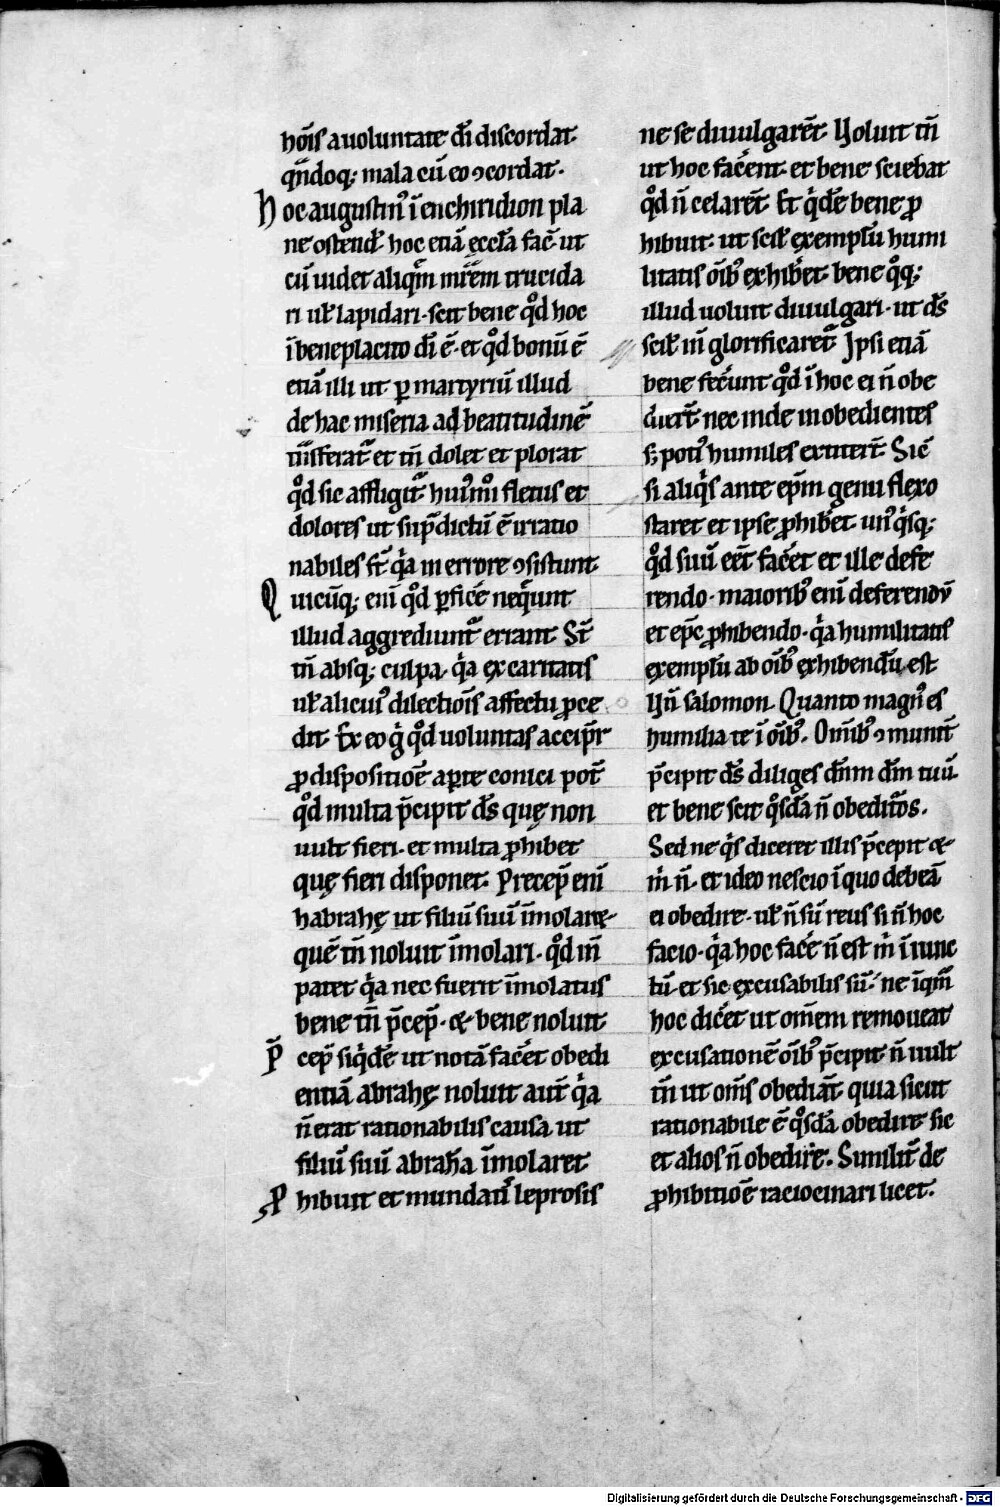 hōis a uoluntate dī discordat.
qn̄doq; mala cū eo ꝯcordat.
Hoc augustin᾿ ī enchiridion pla
ne ostend̄. hoc etiā ęccl̄a fac̄. ut
cū uidet aliquē mr̄em trucida
ri ul̄ lapidari. scit bene qd̄ hoc
ī beneplacito dī ē. et qd̄ bonū ē
etiā illi ut p martyriū illud
de hac miseria ad beatitudinē
t̄nsferat̄ et tn̄ dolet et plorat
qd̄ sic affligit̄ huīmōi fletus et
dolores ut sup̄dictū ē irratio
nabiles st̄ q̄a in errore ꝯsistunt.
Quicūq; enī qd̄ ꝑfic̄e neq̄unt
illud aggrediunt̄ errant. St̄
tn̄ absq; culpa. q̄a ex caritatis
ul̄ alicui᾿ dilectiōis affectu ꝓce
dit. Ex eo ḡ qd̄ uoluntas accipit̄
ꝓ dispositiōe aꝑte conici pot̄
qd̄ multa p̄cipit ds̄ quę non
uult fieri. et multa ꝓhibet
quę fieri disponet. Precep̄ enī
habrahę ut filiū suū īmolaret.
quē tn̄ noluit īmolari. qd̄ in̄
patet q̄a nec fuerit īmolatus
bene tn̄ p̄cep̄. & bene noluit
P̄cep̄ siq̄dē ut notā fac̄et obedi
entiā abrahę noluit aut̄ q̄a
n̄ erat rationabilis causa ut
filiū suū abrahā īmolaret
Ꝓhibuit et mundatis leprosis
ne se diuulgarēt. Voluit tn̄
ut hoc fac̄ent. et bene sciebat
qd̄ n̄ celarēt. Et q̄dē bene ꝓ
hibuit. ut scil̄ exemplū humi
litatis oīb᾿ exhib̄et. bene qq;
illud uoluit diuulgari. ut ds̄
scil̄ in̄ glorificaret̄. Ipsi etiā
bene fec̄unt qd̄ ī hoc ei n̄ obe
dier̄t. nec inde inobedientes
s; poti᾿ humiles extiter̄t. Sic̄
si aliq̄s ante ep̄m genu flexo
staret et ipse ꝓhib̄et. un᾿q̄sq;
qd̄ suū eēt fac̄et et ille defe
rendo. maiorib᾿ enī deferendū
et ep̄c ꝓhibendo. q̄a humilitatis
exemplū ab oīb᾿ exhibendū est
Vn̄ salomon. Quanto magn᾿ es
humilia te ī oīb᾿. Omīb᾿ ꝯmunit̄
p̄cipit ds̄ diliges dn̄m dm̄ tuū.
et bene scit q̄sdā n̄ obedituros.
Sed ne q̄s diceret illis p̄cepit &
m̄ n̄. et ideo nescio ī quo debeā
ei obedire. ul̄ n̄ sū reus si n̄ hoc
facio. q̄a hoc fac̄e n̄ est m̄ īiunc
tū. et sic excusabilis sū. ne īqm̄
hoc dic̄et ut om̄em remoueat
excusationē oīb᾿ p̄cipit. n̄ uult
tn̄ ut om̄s obediāt. quia sicut
rationabile ē q̄sdā obedire sic
et alios n̄ obedire. Similit̄ de
ꝓhibitiōe raciocinari licet.
Digitalisierung gefördert durch die Deutsche Forschungsgemeinschaft - DFG